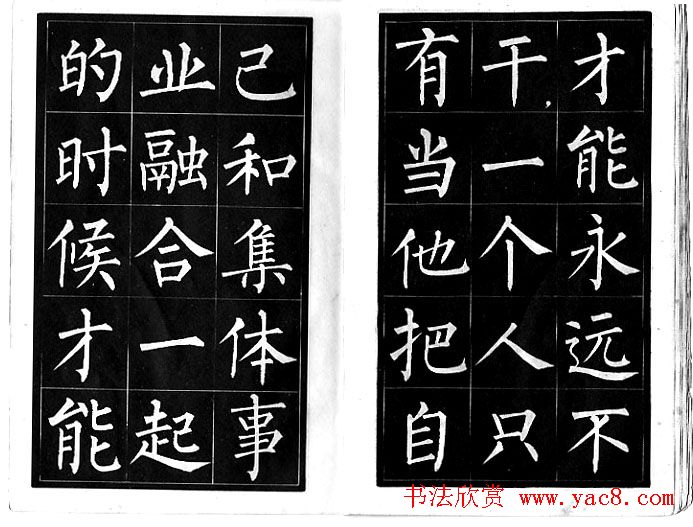 才能永远不
干，一个人只
有当他把自
己和集体事
业融合一起
的时候才能
书法欣赏 www.yac8.com